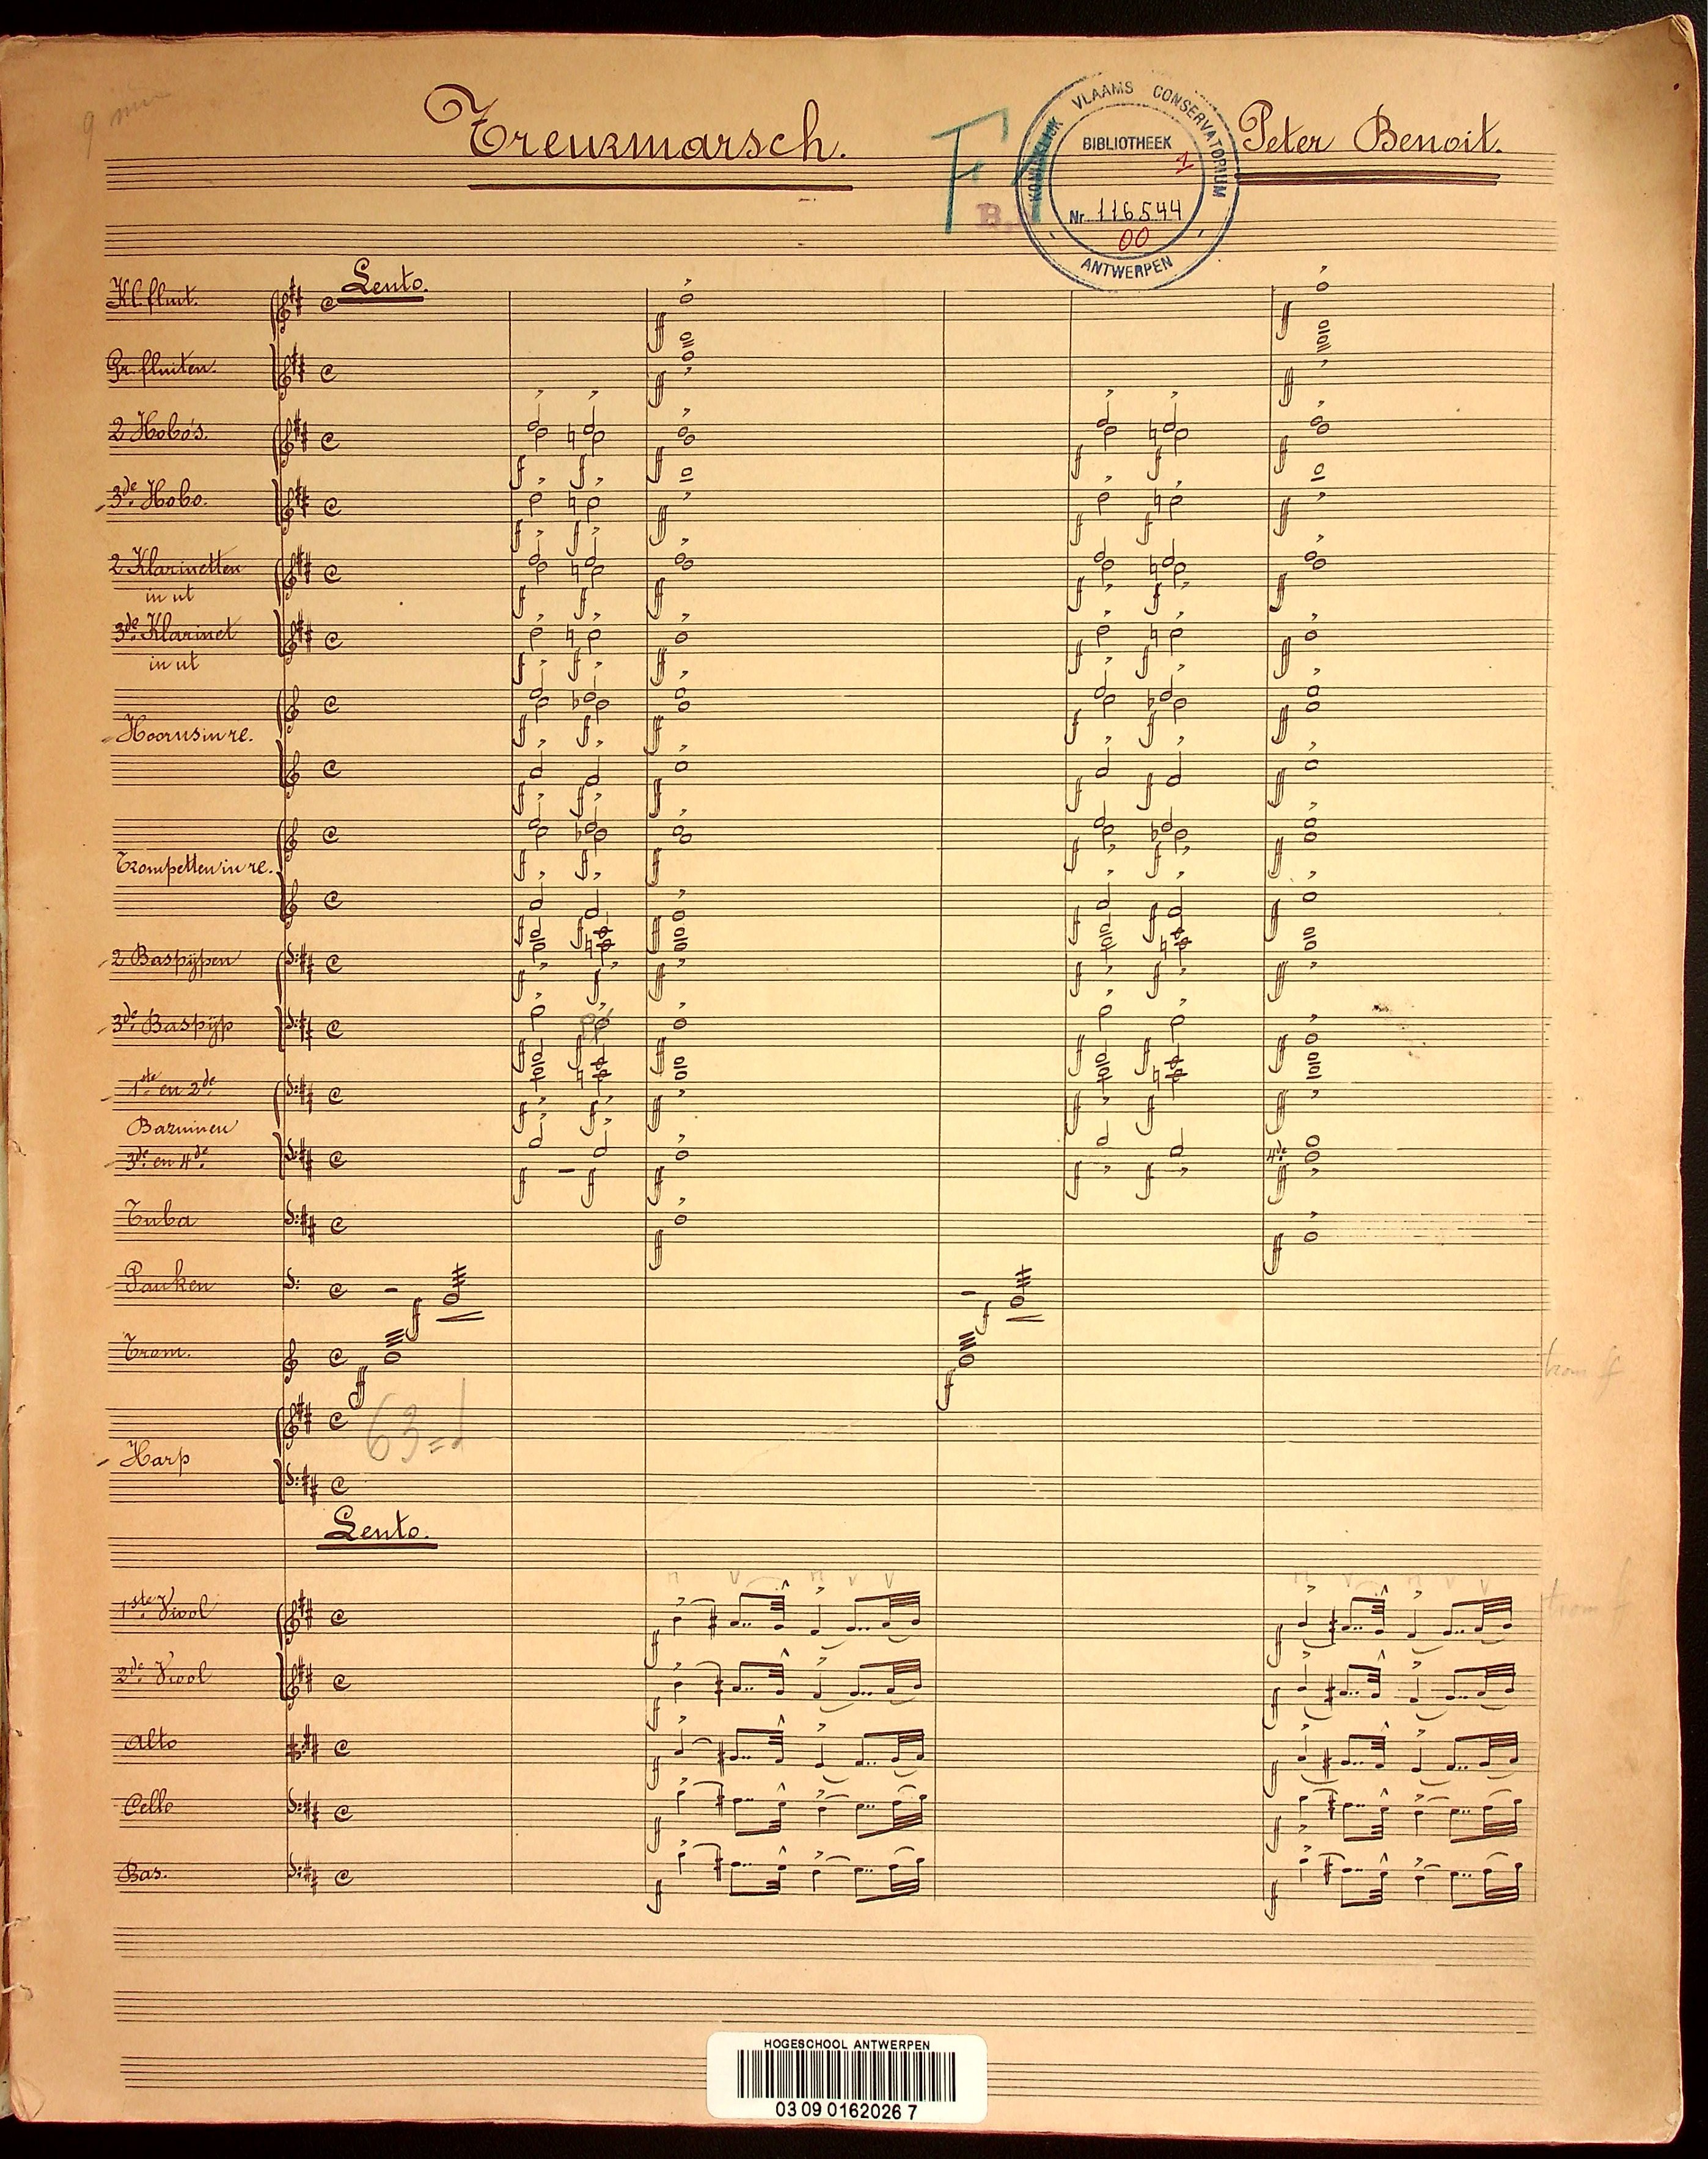 9 min
Treurmarsch.
Peter Benoit.
KONINKLIJK VLAAMS CONSERVATORIUM
BIBLIOTHEEK
1
Nr. 116544
00
ANTWERPEN
B.
Lento.
Kl. fluit.
Gr. fluiten.
2 Hobo's.
3de Hobo.
2 Klarinetten
in ut
3de Klarinet
in ut
Hoorns in re.
Trompetten in re.
2 Baspijpen
3de Baspijp
1ste en 2de
Bazuinen
3de en 4de
4de
Tuba
Pauken
Trom.
trom ff
63=
Harp
Lento.
1ste Viool
trom f
2de Viool
Alto
Cello
Bas.
HOGESCHOOL ANTWERPEN
03 09 0162026 7